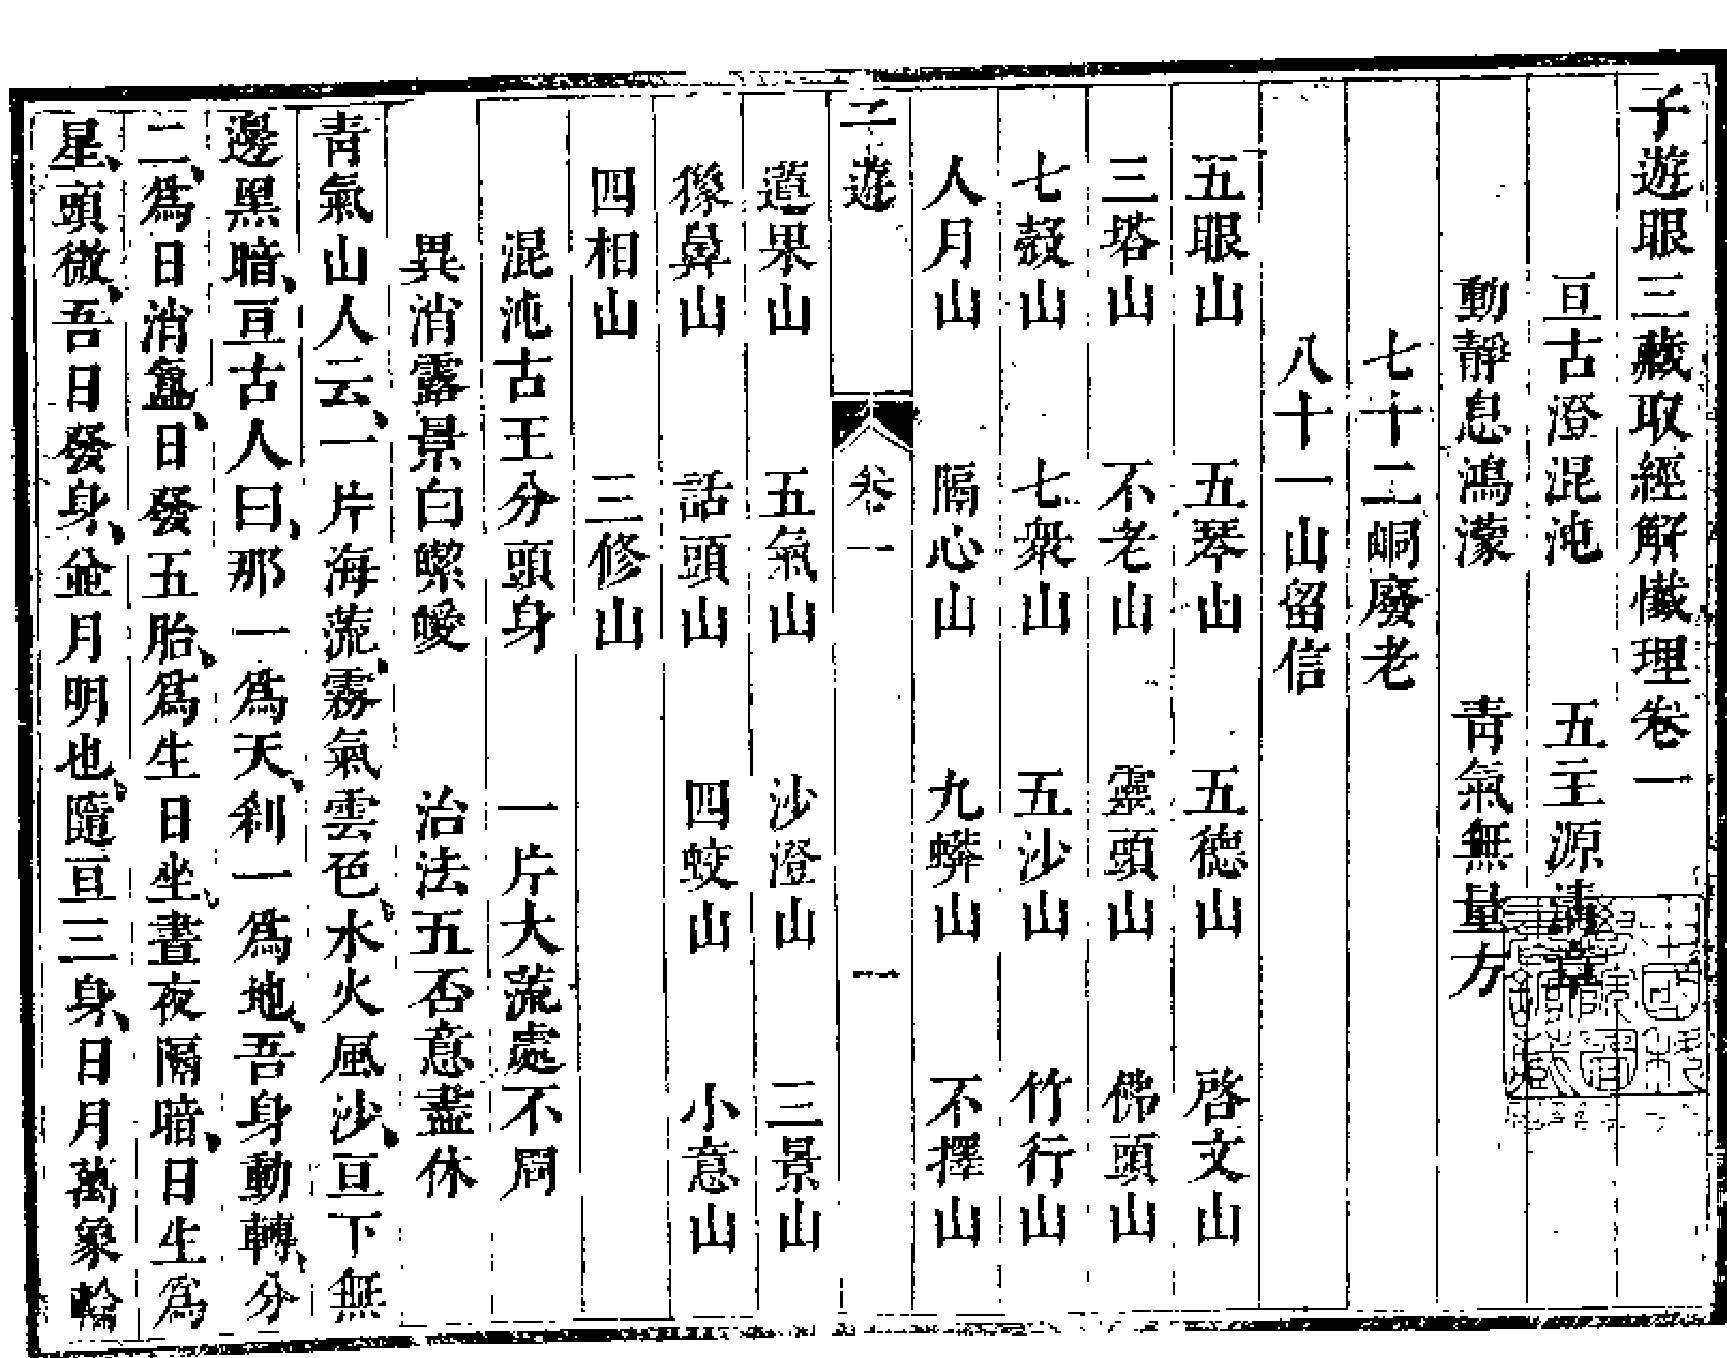 子遊眼三藏取經解懺理卷一
亘古澄混沌　五主源清章
動靜息鴻濛　青氣無量方
七十二峒廢老
八十一山留信
五眼山　五琴山　五德山　啓文山
三塔山　不老山　靈頭山　佛頭山
七彀山　七衆山　五沙山　竹行山
人月山　隔心山　九蟒山　不擇山
子遊　卷一　一
道果山　五氣山　沙澄山　三景山
獠鼻山　話頭山　四蛟山　小意山
四相山　三修山
混沌古王分頭身　一片大㳘處不同
異消露景白㬠曖　治法五否意盡休
青氣山人云、一片海㳘、霧氣雲色、水火風沙、亘下無
邊黑暗、亘古人曰、那一為天、利一為地、吾身動轉、分
二、為日消氳、日發五胎、為生日坐、晝夜隔暗、日生為
星、頭微、吾日發身、並月明也、隨亘三身、日月萬象輪